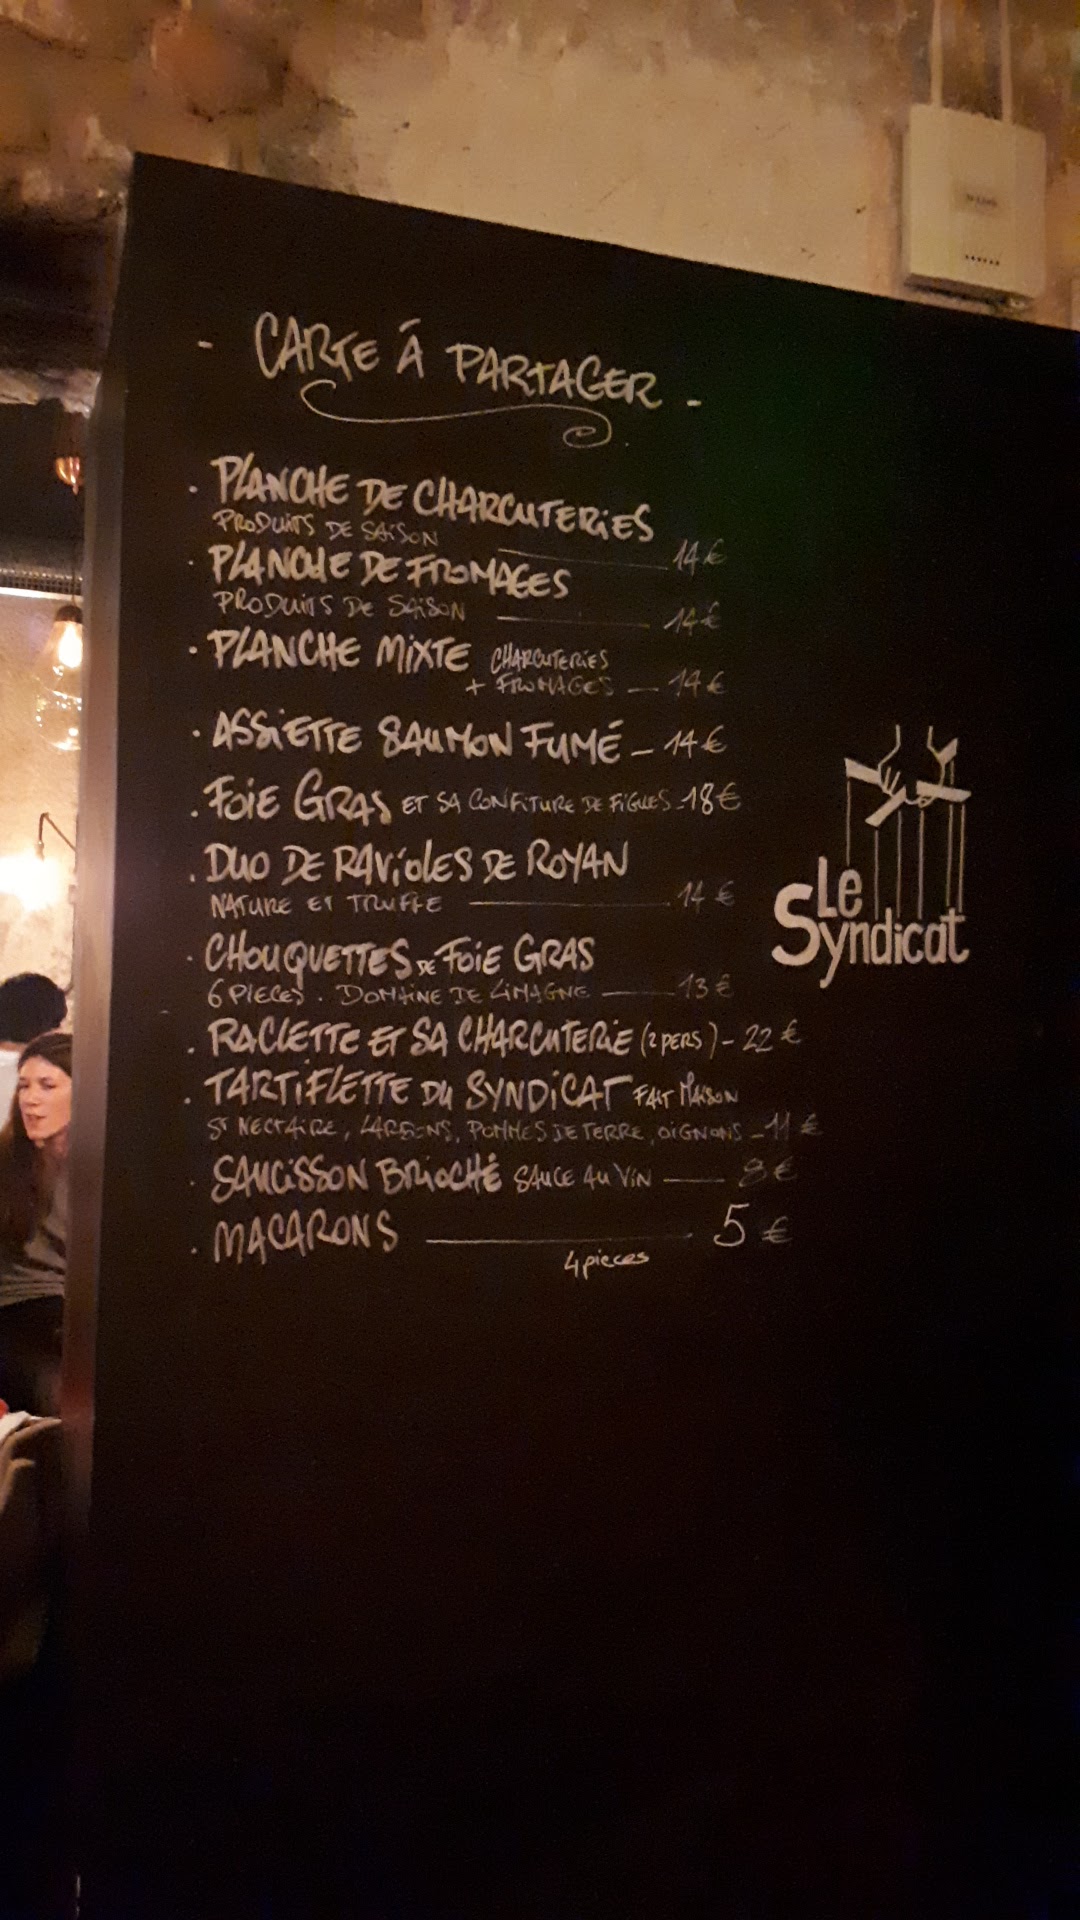 - CARTE À PARTAGER -
. PLANCHE DE CHARCUTERIES
PRODUITS DE SAISON
14 €
. PLANCHE DE FROMAGES
PRODUITS DE SAISON
14 €
. PLANCHE MIXTE CHARCUTERIES
+ FROMAGES - 14 €
. ASSIETTE SAUMON FUMÉ - 14 €
. FOIE GRAS ET SA CONFITURE DE FIGUES - 18 €
. DUO DE RAVIOLES DE ROYAN
NATURE ET TRUFFE 14 €
. CHOUQUETTES DE FOIE GRAS
6 PIECES . DOMAINE DE LIMAGNE 13 €
. RACLETTE ET SA CHARCUTERIE (2 PERS) - 22 €
. TARTIFLETTE DU SYNDICAT FAIT MAISON
ST NECTAIRE, LARDONS, POMMES DE TERRE, OIGNONS - 11 €
. SAUCISSON BRIOCHÉ SAUCE AU VIN 8 €
. MACARONS 5 €
4 pieces
Le
Syndicat